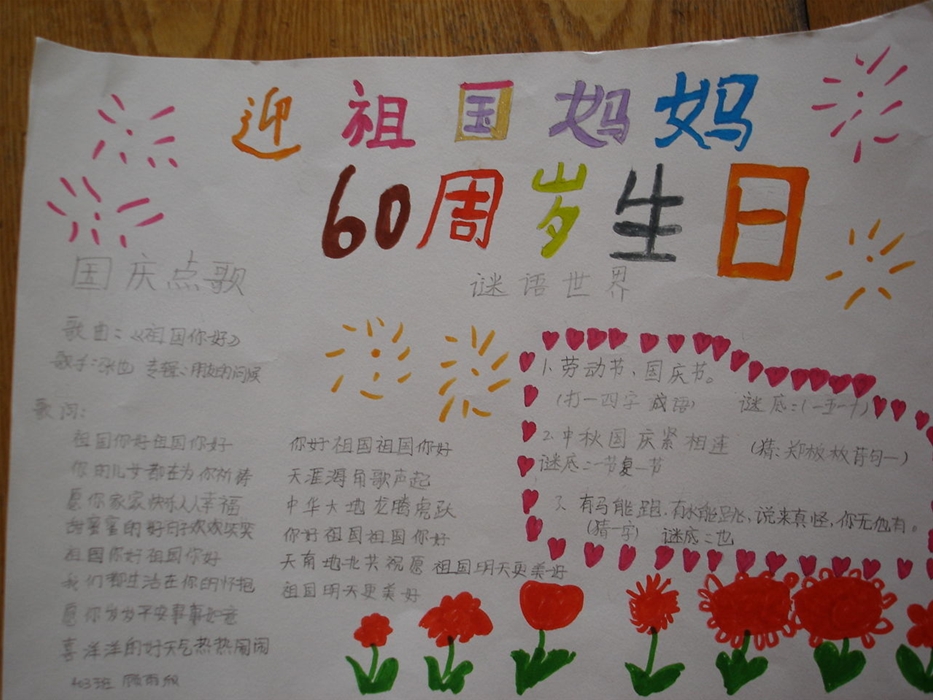 迎祖国妈妈
60周岁生日
国庆点歌
歌曲:《祖国你好》
歌手:张也 专辑:朋友的问候
歌词:
祖国你好祖国你好
你的儿女都在为你祈祷
愿你家家快乐人人幸福
甜蜜蜜的好日子欢欢笑笑
祖国你好祖国你好
我们都生活在你的怀抱
愿你岁岁平安事事如意
喜洋洋的好天气热热闹闹
403班
你好祖国祖国你好
天涯海角歌声起
中华大地龙腾虎跃
你好祖国祖国你好
天南地北共祝愿 祖国明天更美好
祖国明天更美好
谜语世界
1、劳动节、国庆节。
(打一四字成语) 谜底:(一五一十)
2.中秋国庆紧相连 (猜:郑板桥诗句一)
谜底:一节复一节
3、有马能跑,有水能跳,说来真怪,你无他有。
(猜一字) 谜底:也